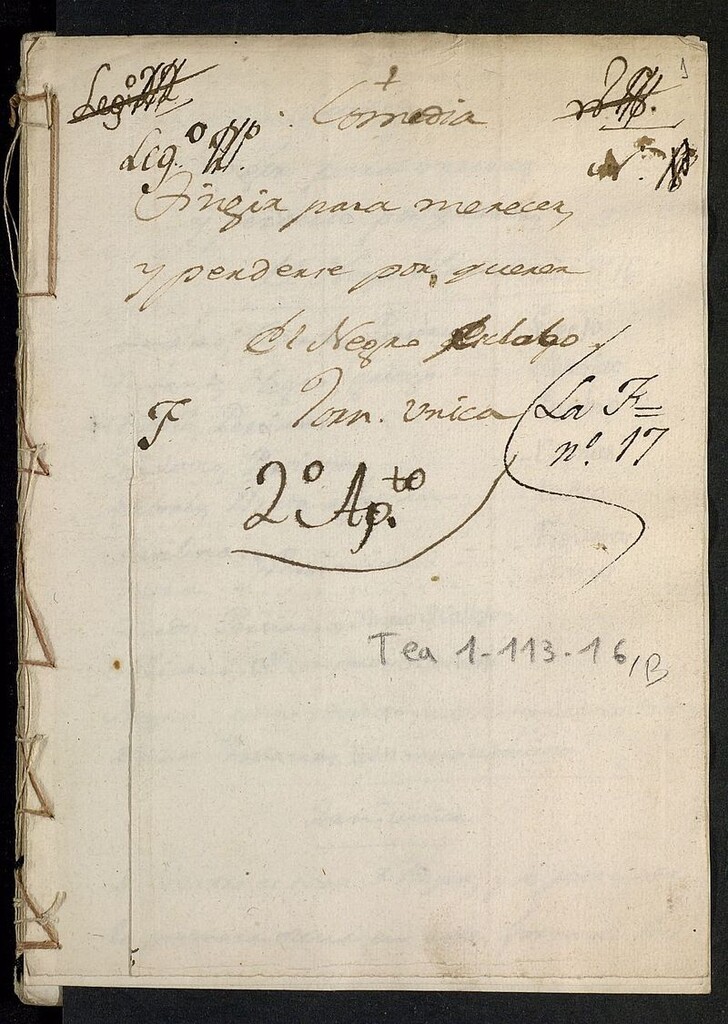 1
Leg.º
Comedia
Leg.º
Nº
Fingir para merecer,
y perderse por querer
El Negro
Jorn. unica
La F=
nº. 17
F
2º Ap.to
Tea 1-113-16, B